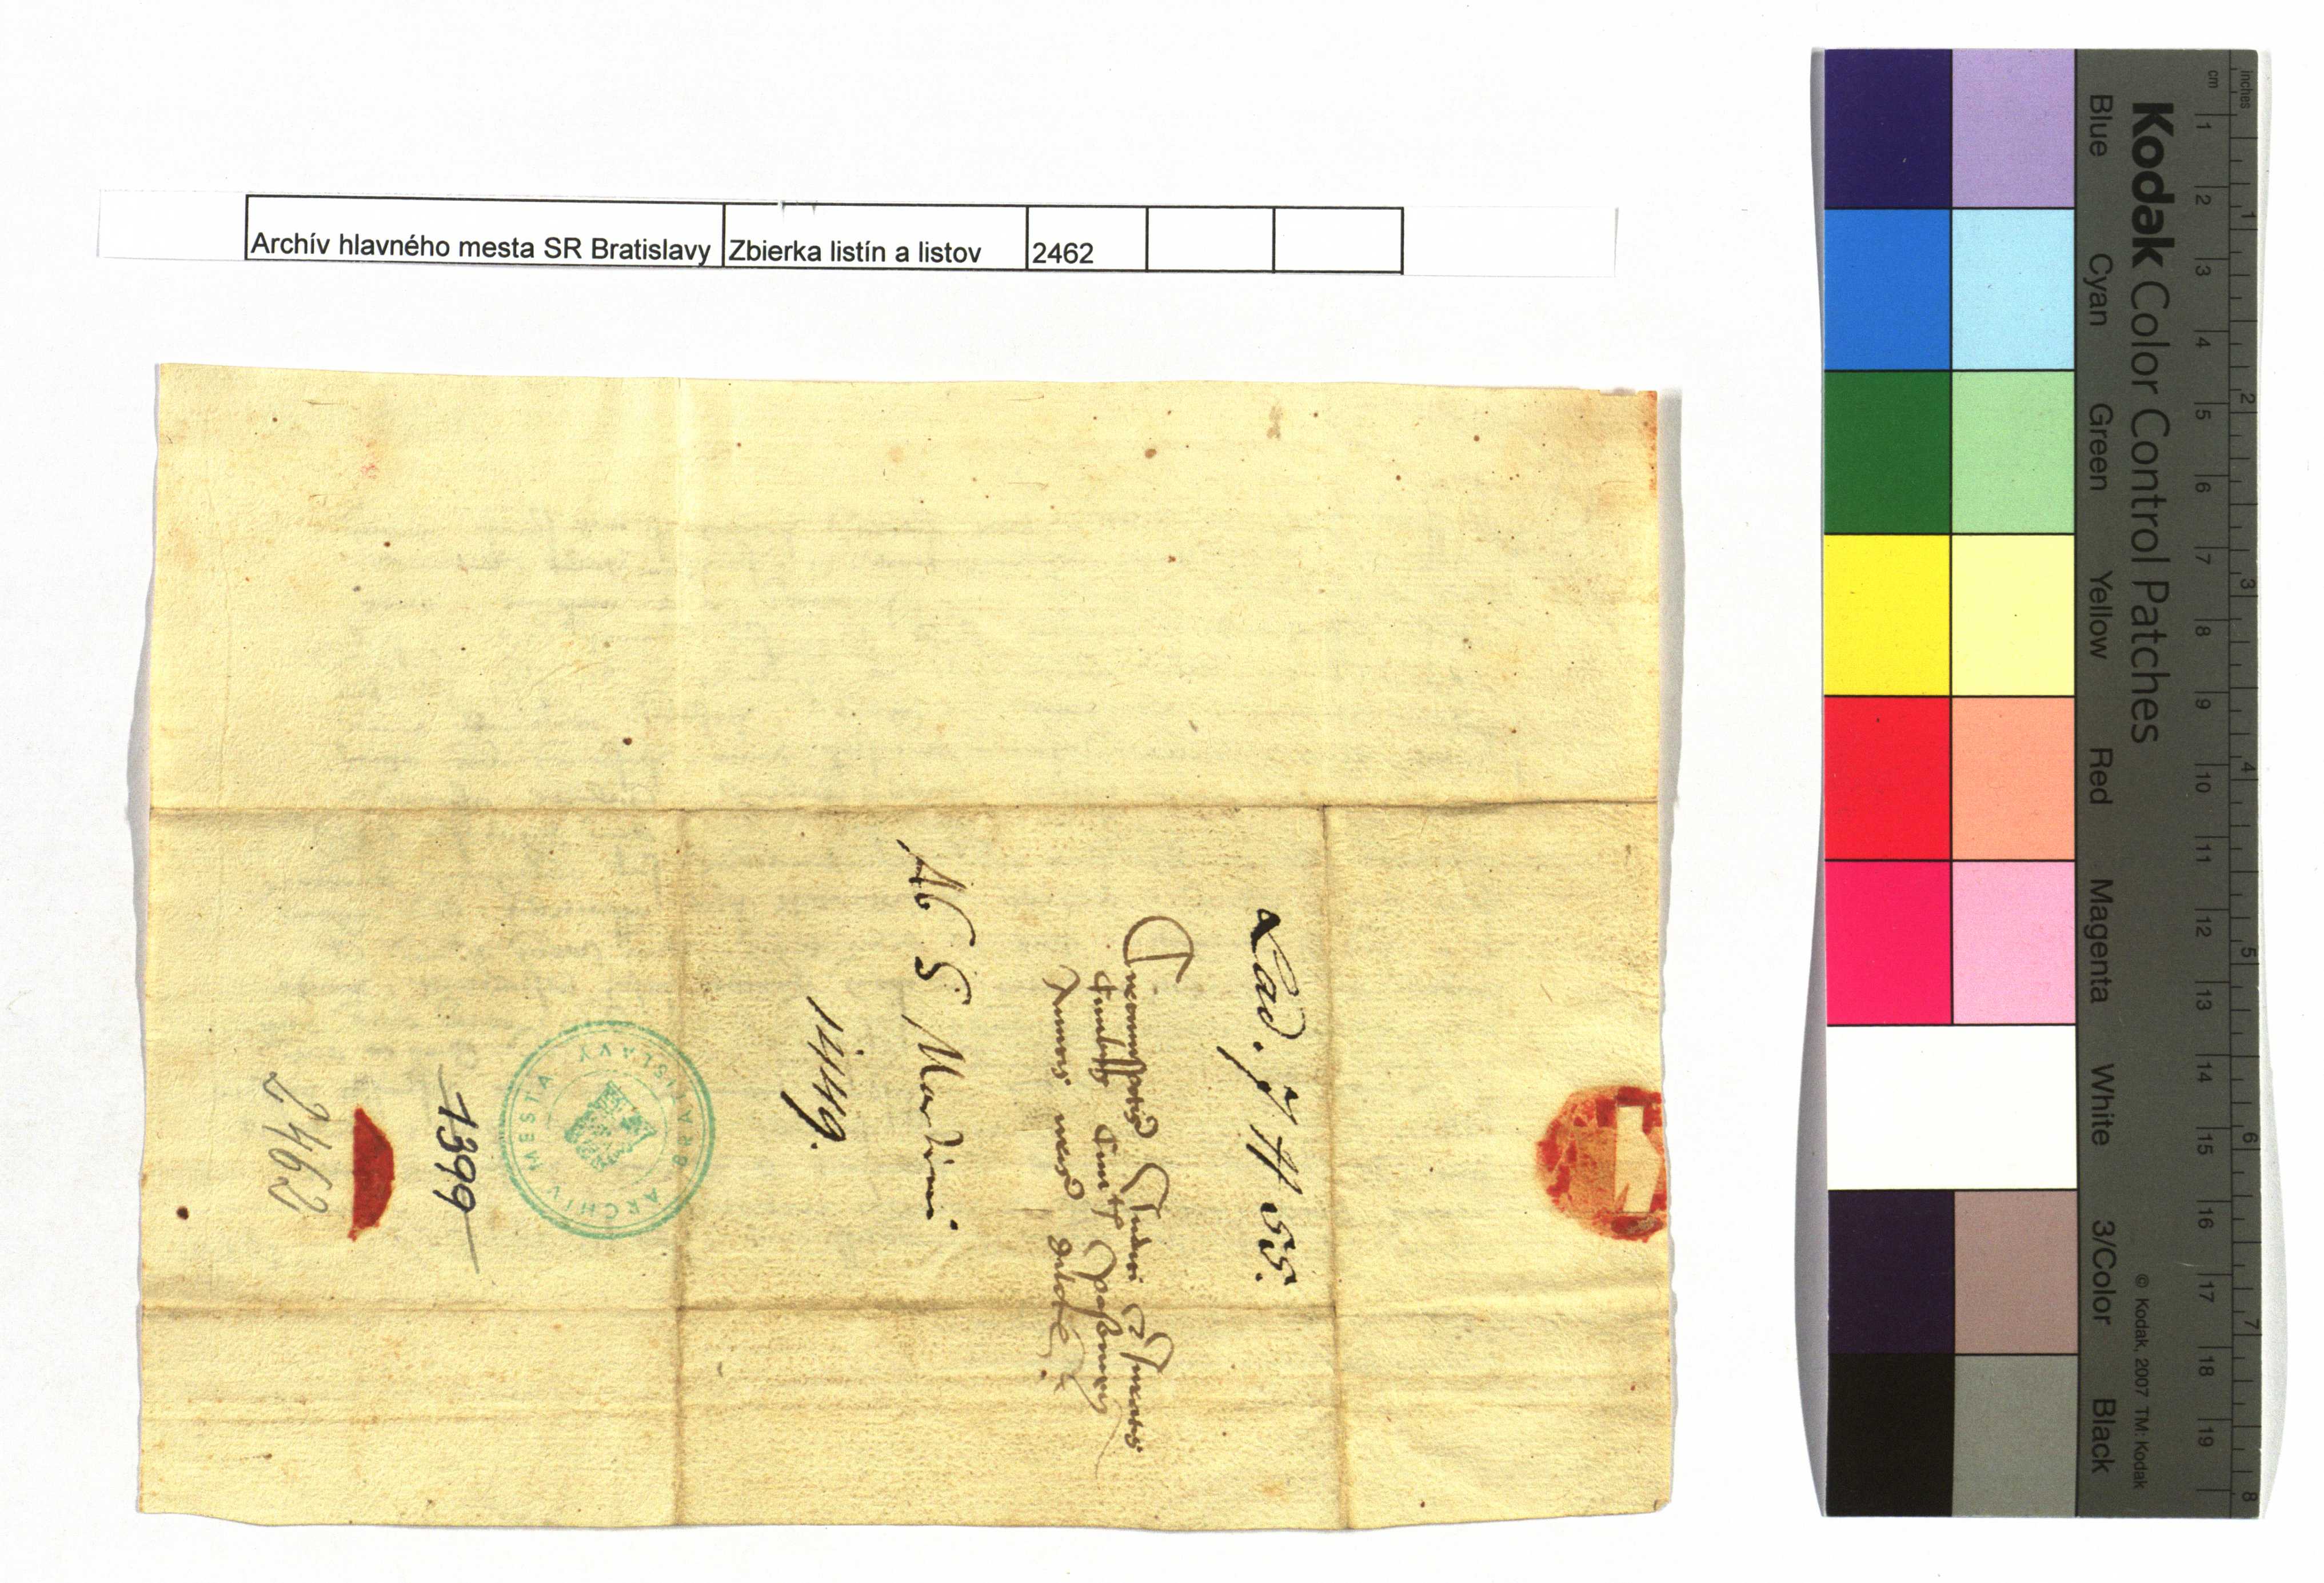 Archív hlavného mesta SR Bratislavy Zbierka listín a listov 2462
Lad. 7 H 55.
Circumspectis Judici et Juratis
Civibus Civitatis Posoniensis
Amicis meis
Ab S Martini
1449.
ARCHÍV MESTA BRATISLAVY
1399
2462
Kodak Color Control Patches
Blue Cyan Green Yellow Red Magenta White 3/Color Black
© Kodak, 2007 TM: Kodak
cm 1 2 3 4 5 6 7 8 9 10 11 12 13 14 15 16 17 18 19
inches 1 2 3 4 5 6 7 8